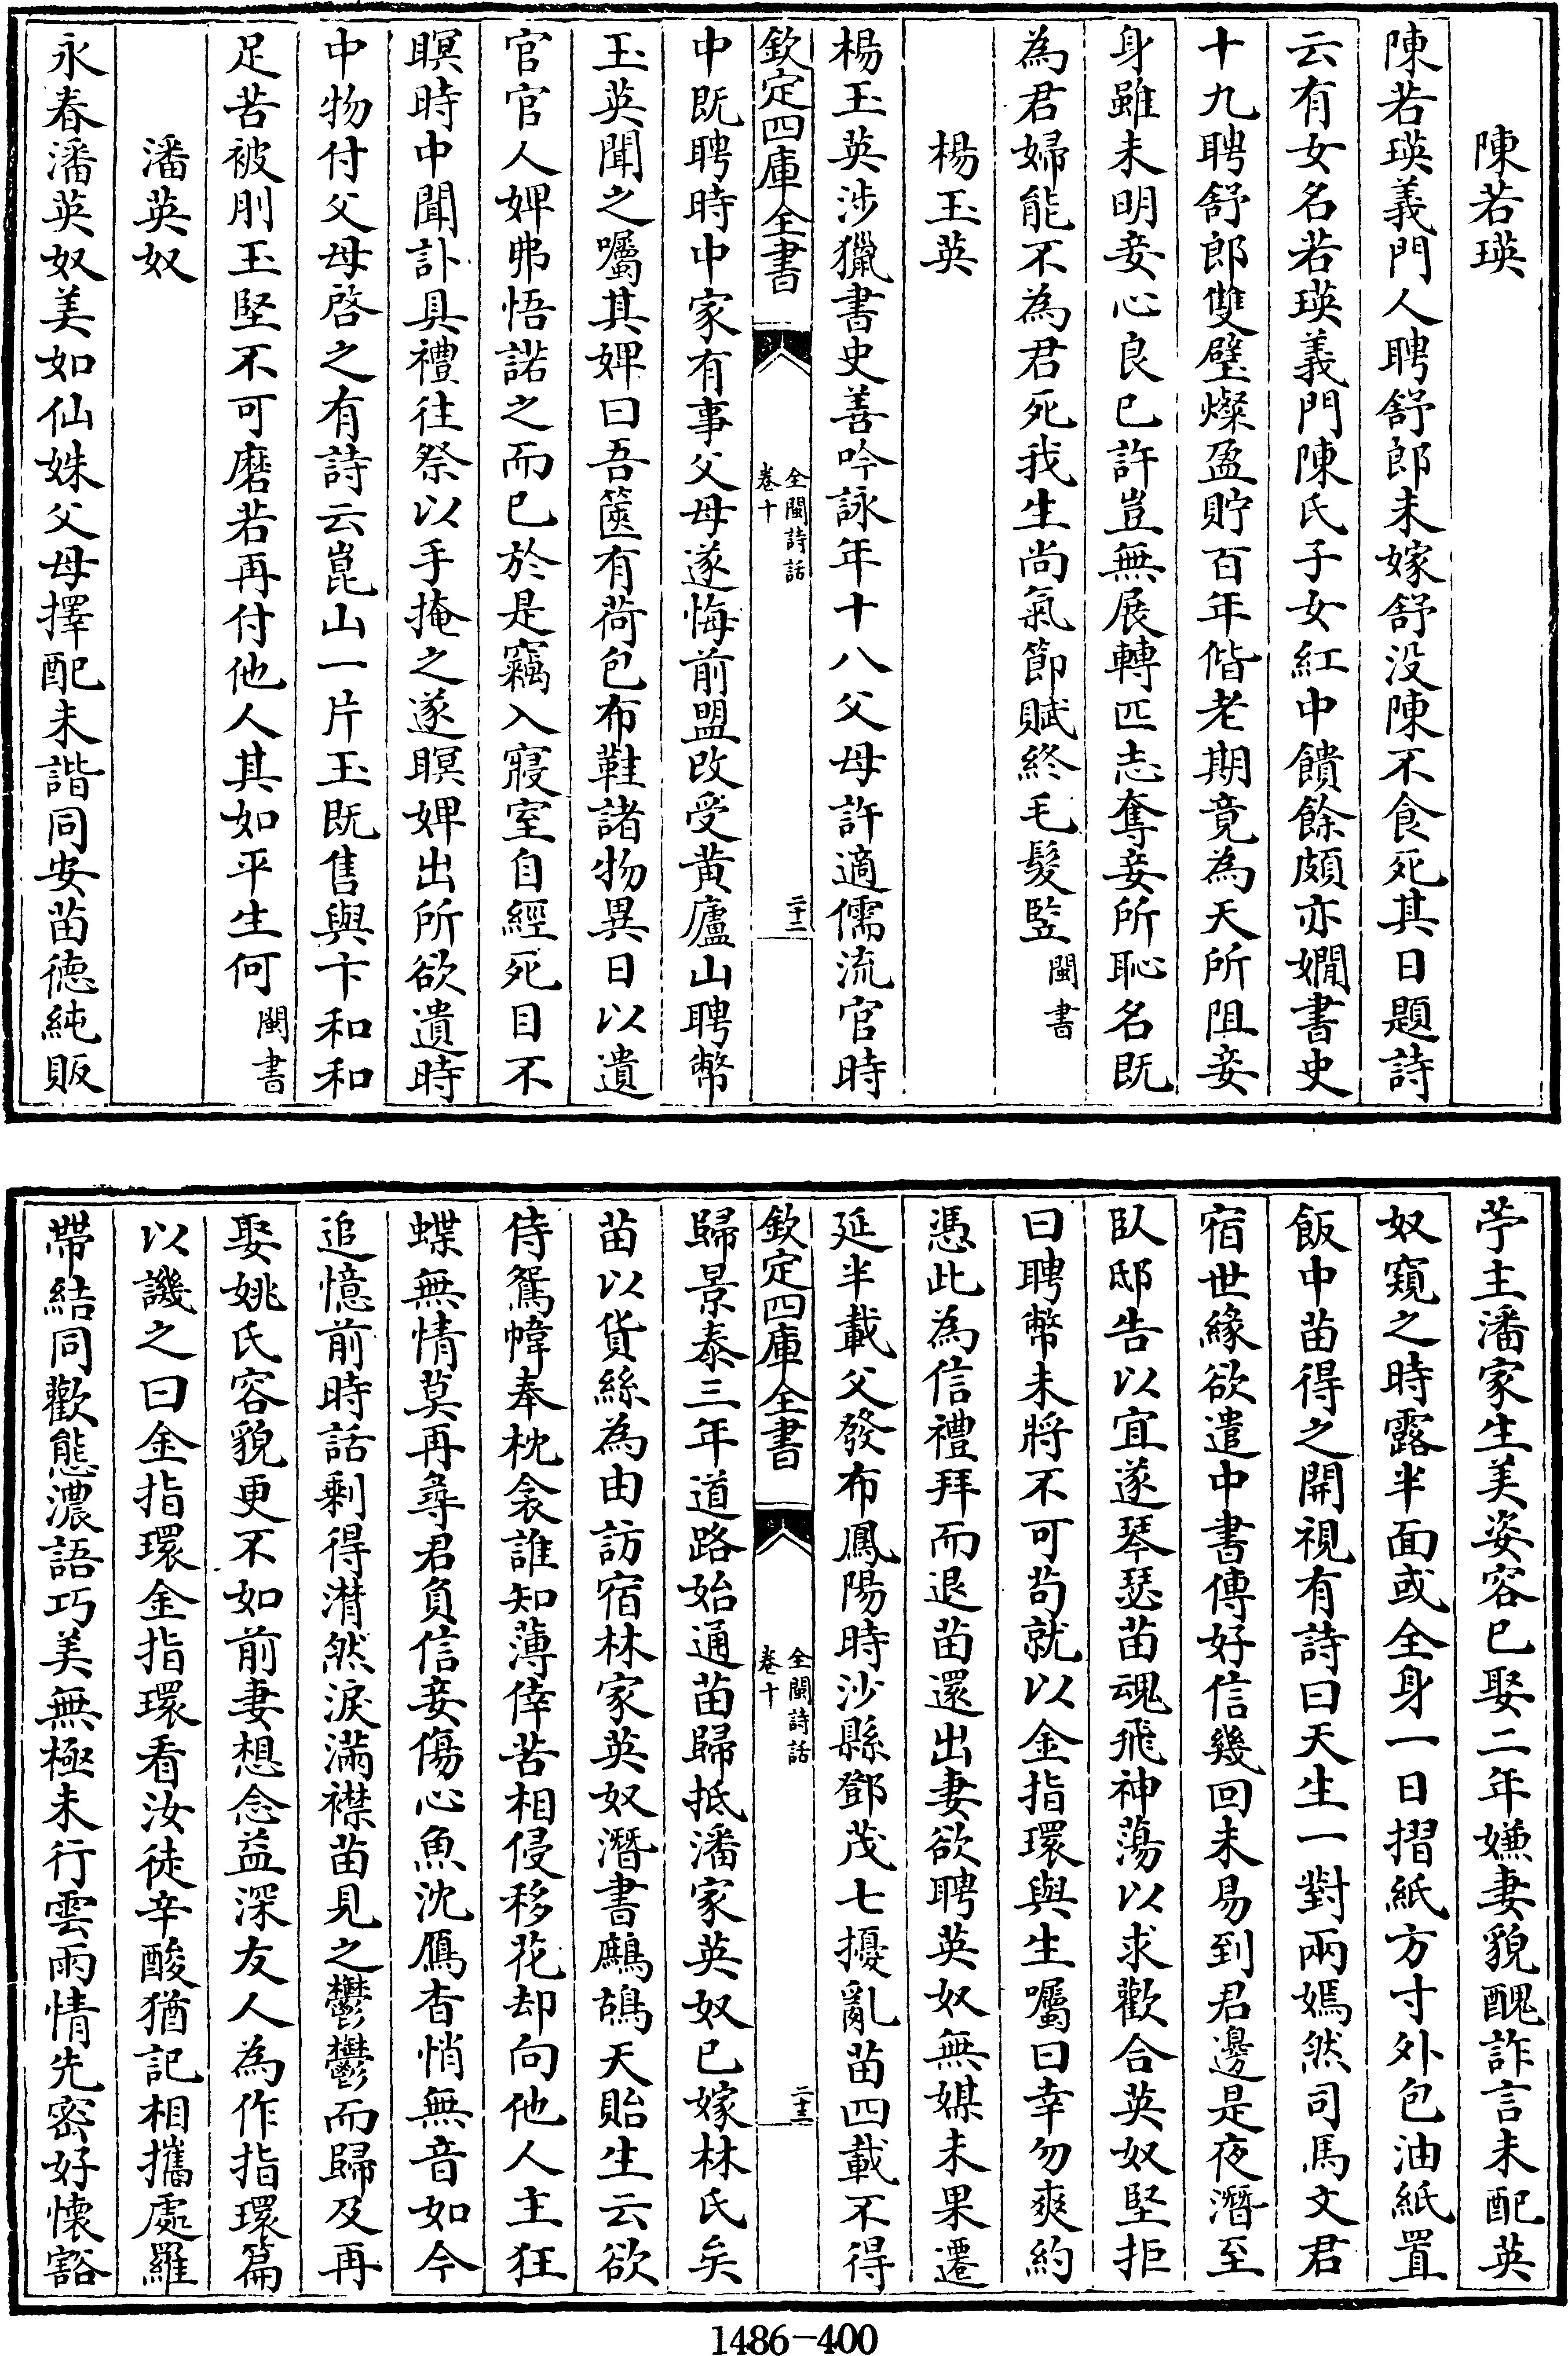 陳若瑛
陳若瑛義門人聘舒郎未嫁舒没陳不食死其日題詩
云有女名若瑛義門陳氏子女紅中饋餘頗亦嫺書史
十九聘舒郎雙璧燦盈貯百年偕老期竟為天所阻妾
身雖未明妾心良已許豈無展轉匹志奪妾所恥名既
為君婦能不為君死我生尚氣節賦終毛髮竪閩書
楊玉英
楊玉英涉獵書史善吟詠年十八父母許適儒流官時
欽定四庫全書
全閩詩話
卷十
二十二
中既聘時中家有事父母遂悔前盟改受黄廬山聘幣
玉英聞之囑其婢曰吾篋有荷包布鞋諸物異日以遺
官官人婢弗悟諾之而已於是竊入寢室自經死目不
瞑時中聞訃具禮往祭以手掩之遂瞑婢出所欲遺時
中物付父母啓之有詩云崑山一片玉既售與卞和和
足苦被刖玉堅不可磨若再付他人其如平生何閩書
潘英奴
永春潘英奴美如仙姝父母擇配未諧同安苗德純販
苧主潘家生美姿容已娶二年嫌妻貌醜詐言未配英
奴窺之時露半面或全身一日摺紙方寸外包油紙置
飯中苗得之開視有詩曰天生一對兩嫣然司馬文君
宿世緣欲遣中書傳好信幾回未易到君邊是夜潛至
臥邸告以宜遂琴瑟苗魂飛神蕩以求歡合英奴堅拒
曰聘幣未將不可茍就以金指環與生囑曰幸勿爽約
憑此為信禮拜而退苗還出妻欲聘英奴無媒未果遷
延半載父發布鳳陽時沙縣鄧茂七擾亂苗四載不得
欽定四庫全書
全閩詩話
卷十
二十三
歸景泰三年道路始通苗歸抵潘家英奴已嫁林氏矣
苗以貨絲為由訪宿林家英奴潛書鷓鴣天貽生云欲
侍鴛幃奉枕衾誰知薄倖苦相侵移花却向他人主狂
蝶無情莫再尋君負信妾傷心魚沈鴈杳悄無音如今
追憶前時話剩得潸然淚滿襟苗見之鬱鬱而歸及再
娶姚氏容貌更不如前妻想念益深友人為作指環篇
以譏之曰金指環金指環看汝徒辛酸猶記相攜處羅
帶結同歡態濃語巧美無極未行雲雨情先密好懷豁
1486-400